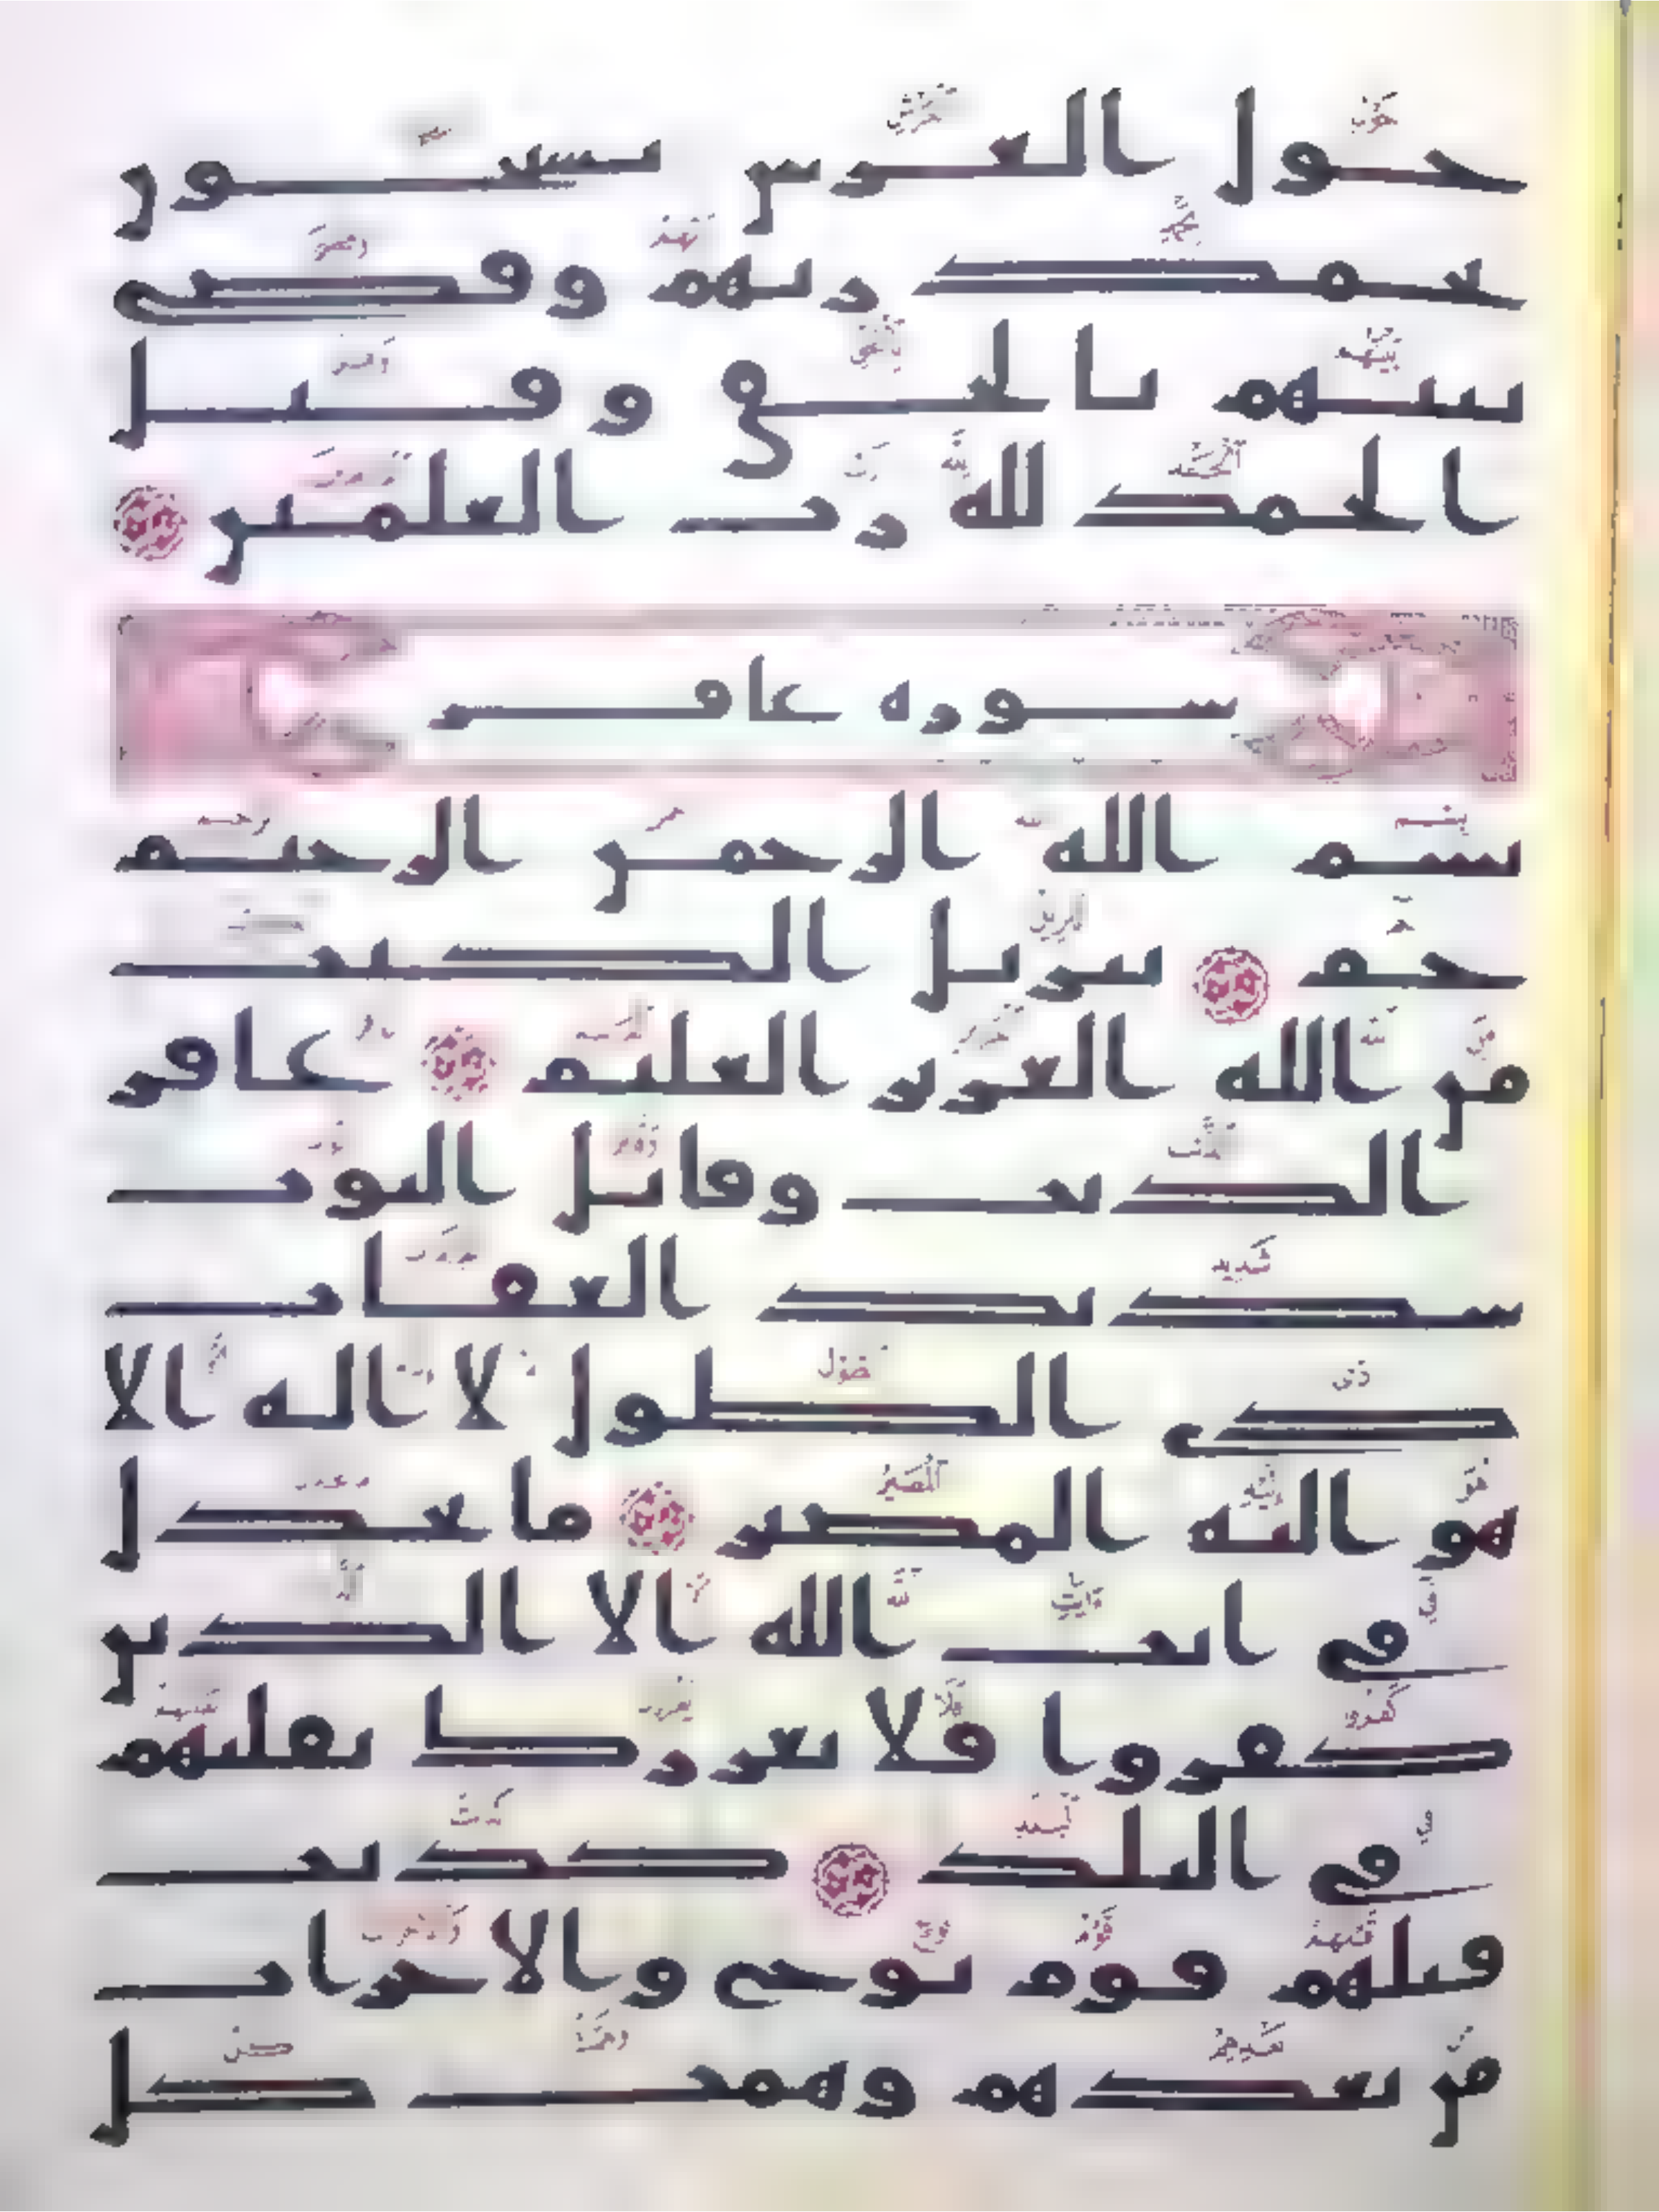 حول العرش يسبحون
بحمد ربهم وقضي
بينهم بالحق وقيل
الحمد لله رب العلمين
سورة غافر
بسم الله الرحمن الرحيم
حم تنزيل الكتب
من الله العزيز العليم غافر
الذنب وقابل التوب
شديد العقاب
ذي الطول لا اله الا
هو اليه المصير ما يجدل
في ايت الله الا الذين
كفروا فلا يغررك تقلبهم
في البلد كذبت
قبلهم قوم نوح والاحزاب
من بعدهم وهمت كل